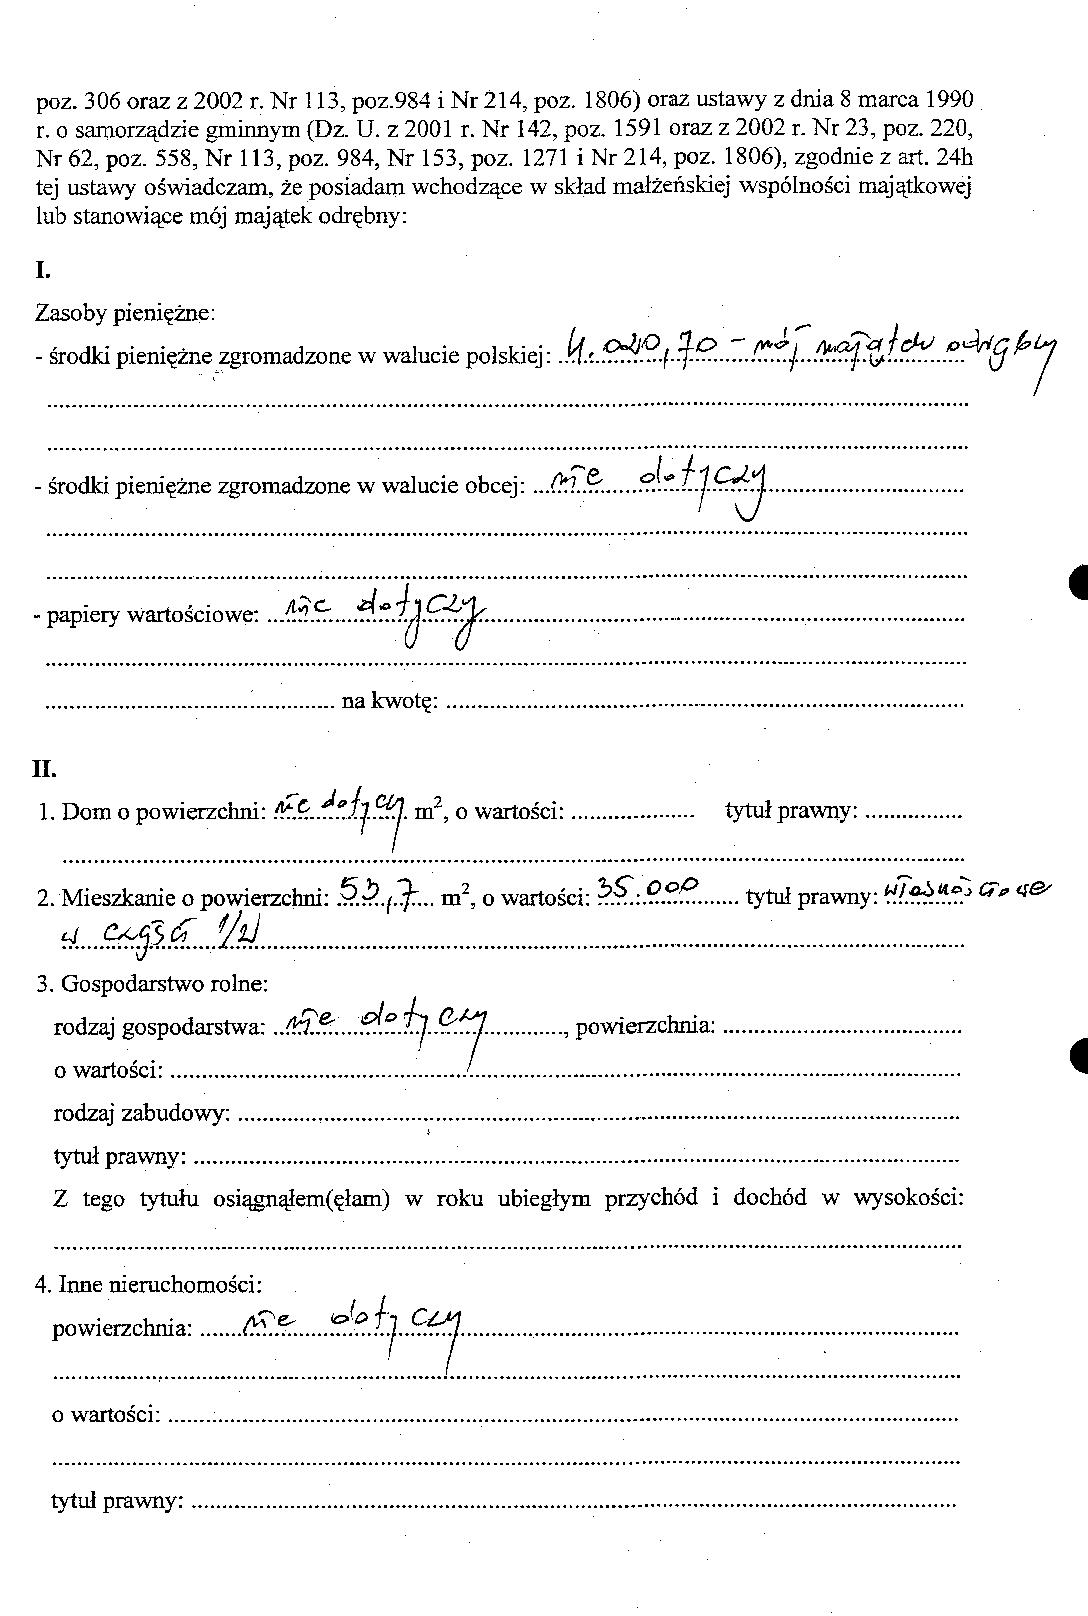 poz. 306 oraz z 2002 r. Nr 113, poz.984 i Nr 214, poz. 1806) oraz ustawy z dnia 8 marca 1990
r. o samorządzie gminnym (Dz. U. z 2001 r. Nr 142, poz. 1591 oraz z 2002 r. Nr 23, poz. 220,
Nr 62, poz. 558, Nr 113, poz. 984, Nr 153, poz. 1271 i Nr 214, poz. 1806), zgodnie z art. 24h
tej ustawy oświadczam, że posiadam wchodzące w skład małżeńskiej wspólności majątkowej
lub stanowiące mój majątek odrębny:
I.
Zasoby pieniężne:
- środki pieniężne zgromadzone w walucie polskiej: - mój majątek odrębny
- środki pieniężne zgromadzone w walucie obcej: nie dotyczy
- papiery wartościowe: nie dotyczy
na kwotę:
II.
1. Dom o powierzchni: nie dotyczy m², o wartości: tytuł prawny:
2. Mieszkanie o powierzchni: 53,7 m², o wartości: 35.000 tytuł prawny: własnościowe
w części 1/2
3. Gospodarstwo rolne:
rodzaj gospodarstwa: nie dotyczy, powierzchnia:
o wartości:
rodzaj zabudowy:
tytuł prawny:
Z tego tytułu osiągnąłem(ęłam) w roku ubiegłym przychód i dochód w wysokości:
4. Inne nieruchomości:
powierzchnia: nie dotyczy
o wartości:
tytuł prawny: